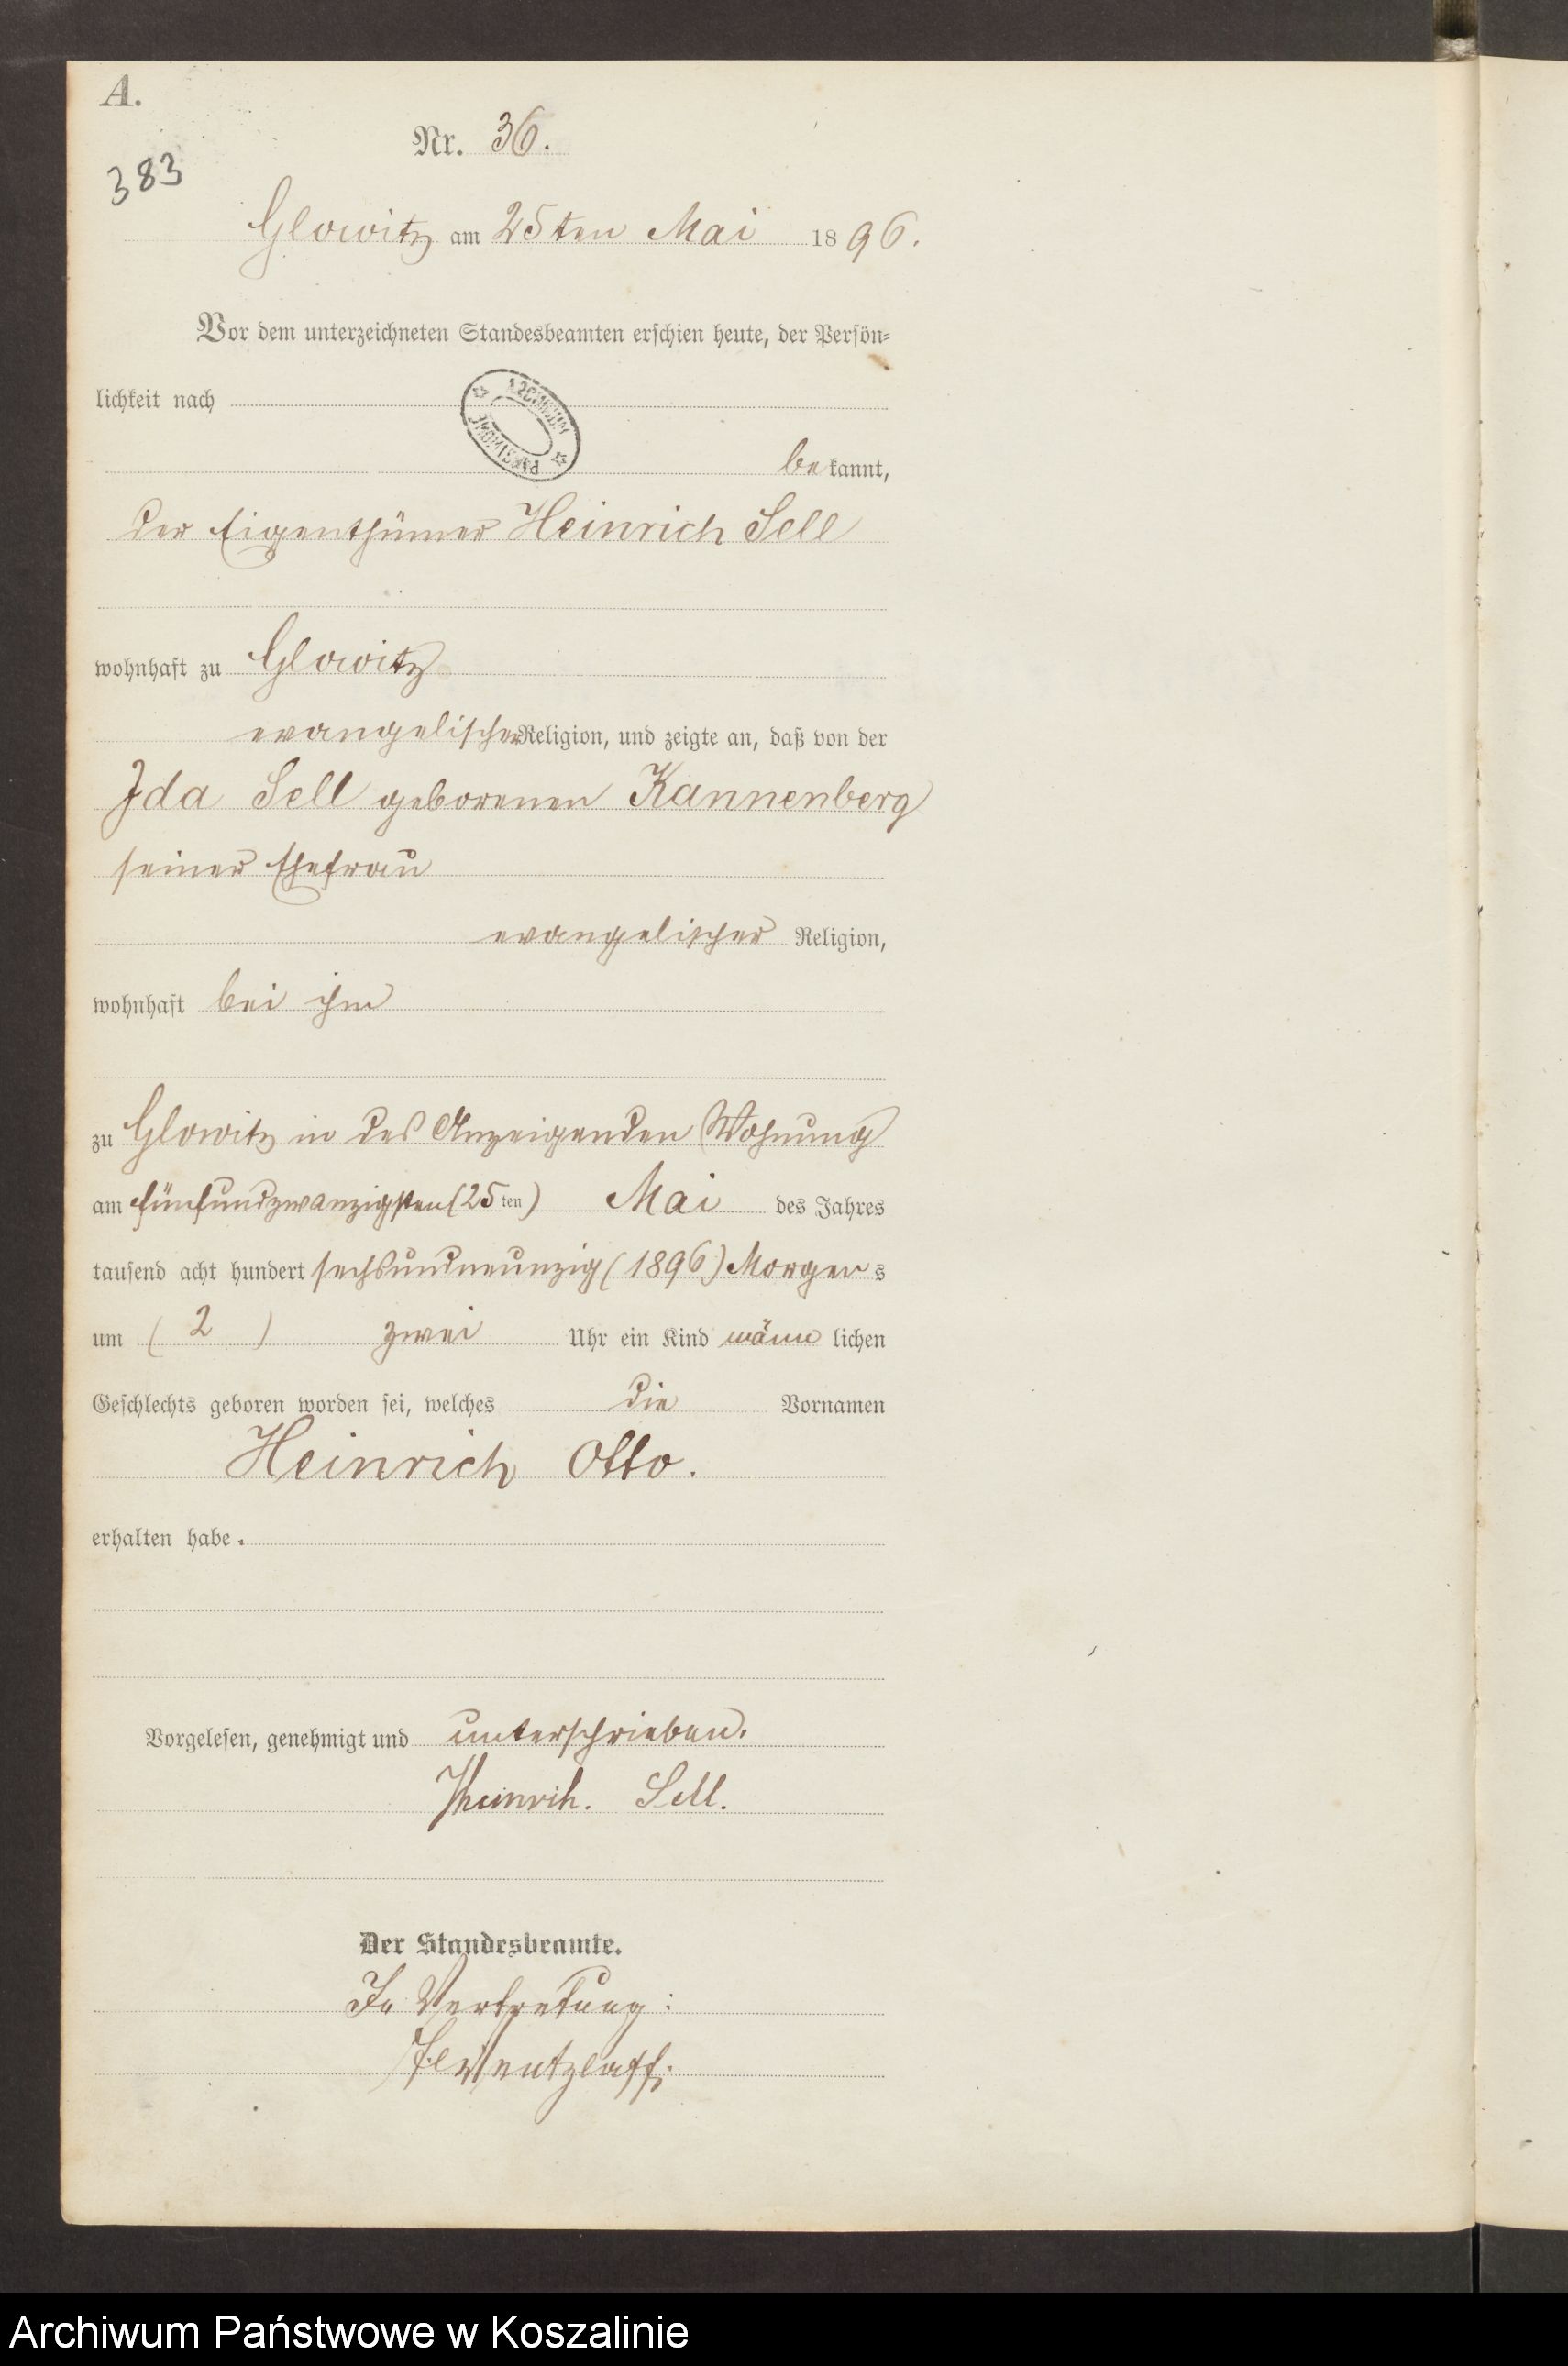 A.
Nr. 36.
383
Glowitz am 25ten Mai 1896.
Vor dem unterzeichneten Standesbeamten erschien heute, der Persön-
lichkeit nach
bekannt,
der Eigenthümer Heinrich Sell
wohnhaft zu Glowitz
evangelischer Religion, und zeigte an, daß von der
Ida Sell geborenen Kannenberg
seiner Ehefrau
evangelischer Religion,
wohnhaft bei ihm
zu Glowitz in des Anzeigenden Wohnung
am fünfundzwanzigsten (25ten) Mai des Jahres
tausend acht hundert sechsundneunzig (1896) Morgens
um (2) zwei Uhr ein Kind männlichen
Geschlechts geboren worden sei, welches die Vornamen
Heinrich Otto.
erhalten habe.
Vorgelesen, genehmigt und unterschrieben.
Heinrih. Sell.
Der Standesbeamte.
In Vertretung:
Archiwum Państwowe w Koszalinie